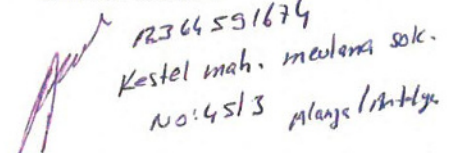 12364591674
Kestel mah. mevlana sok.
No:45/3 Alanya/Antalya